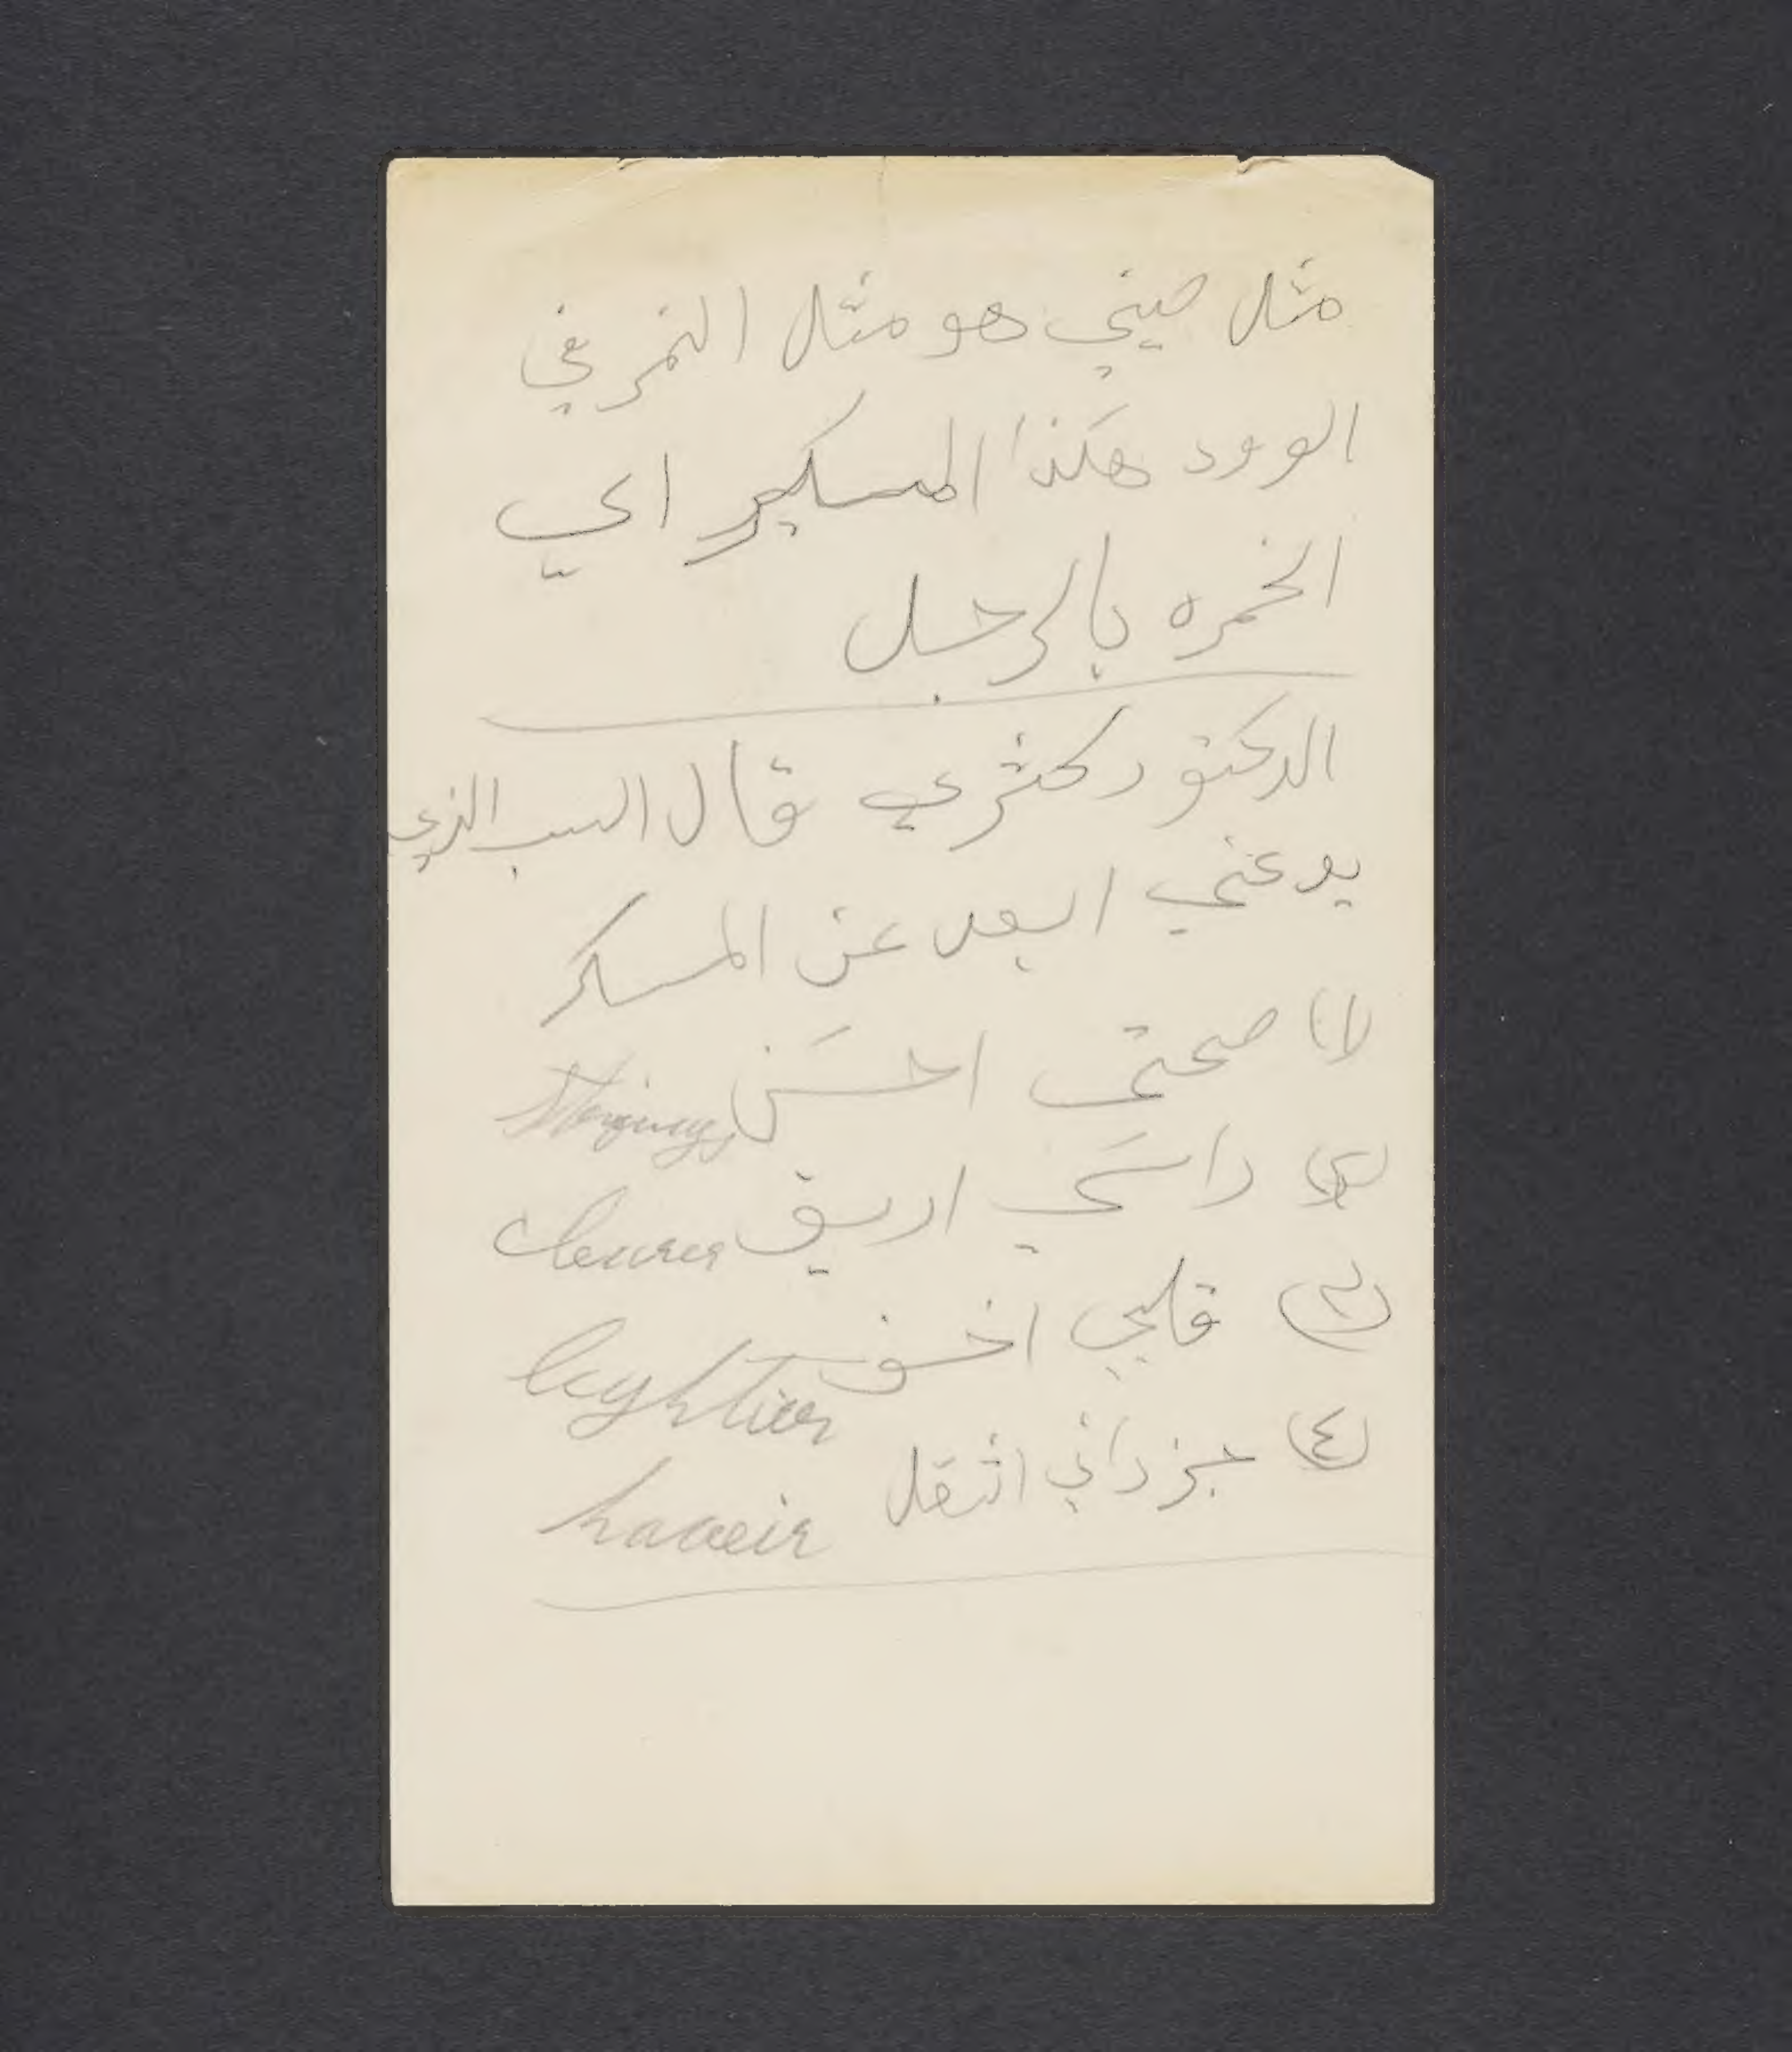 مثل صيني هو مثل النمر في
الوود هكذا المسكير اي
الخمره بالرجل
الدكتور كثري قال السبب الذي
يدعني ابعد عن المسكر
(١) صحتي احسن
(٢) راسي اريق clearer
(٣) قلبي اخف
(٤) جزداني اثقل